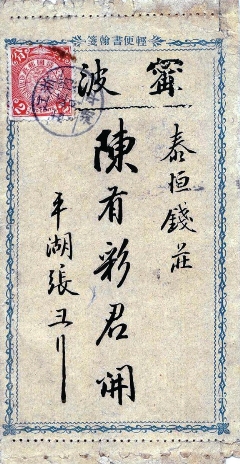 箋翰書便輕
波甯
泰恒錢莊
陳有彩君開
平湖張